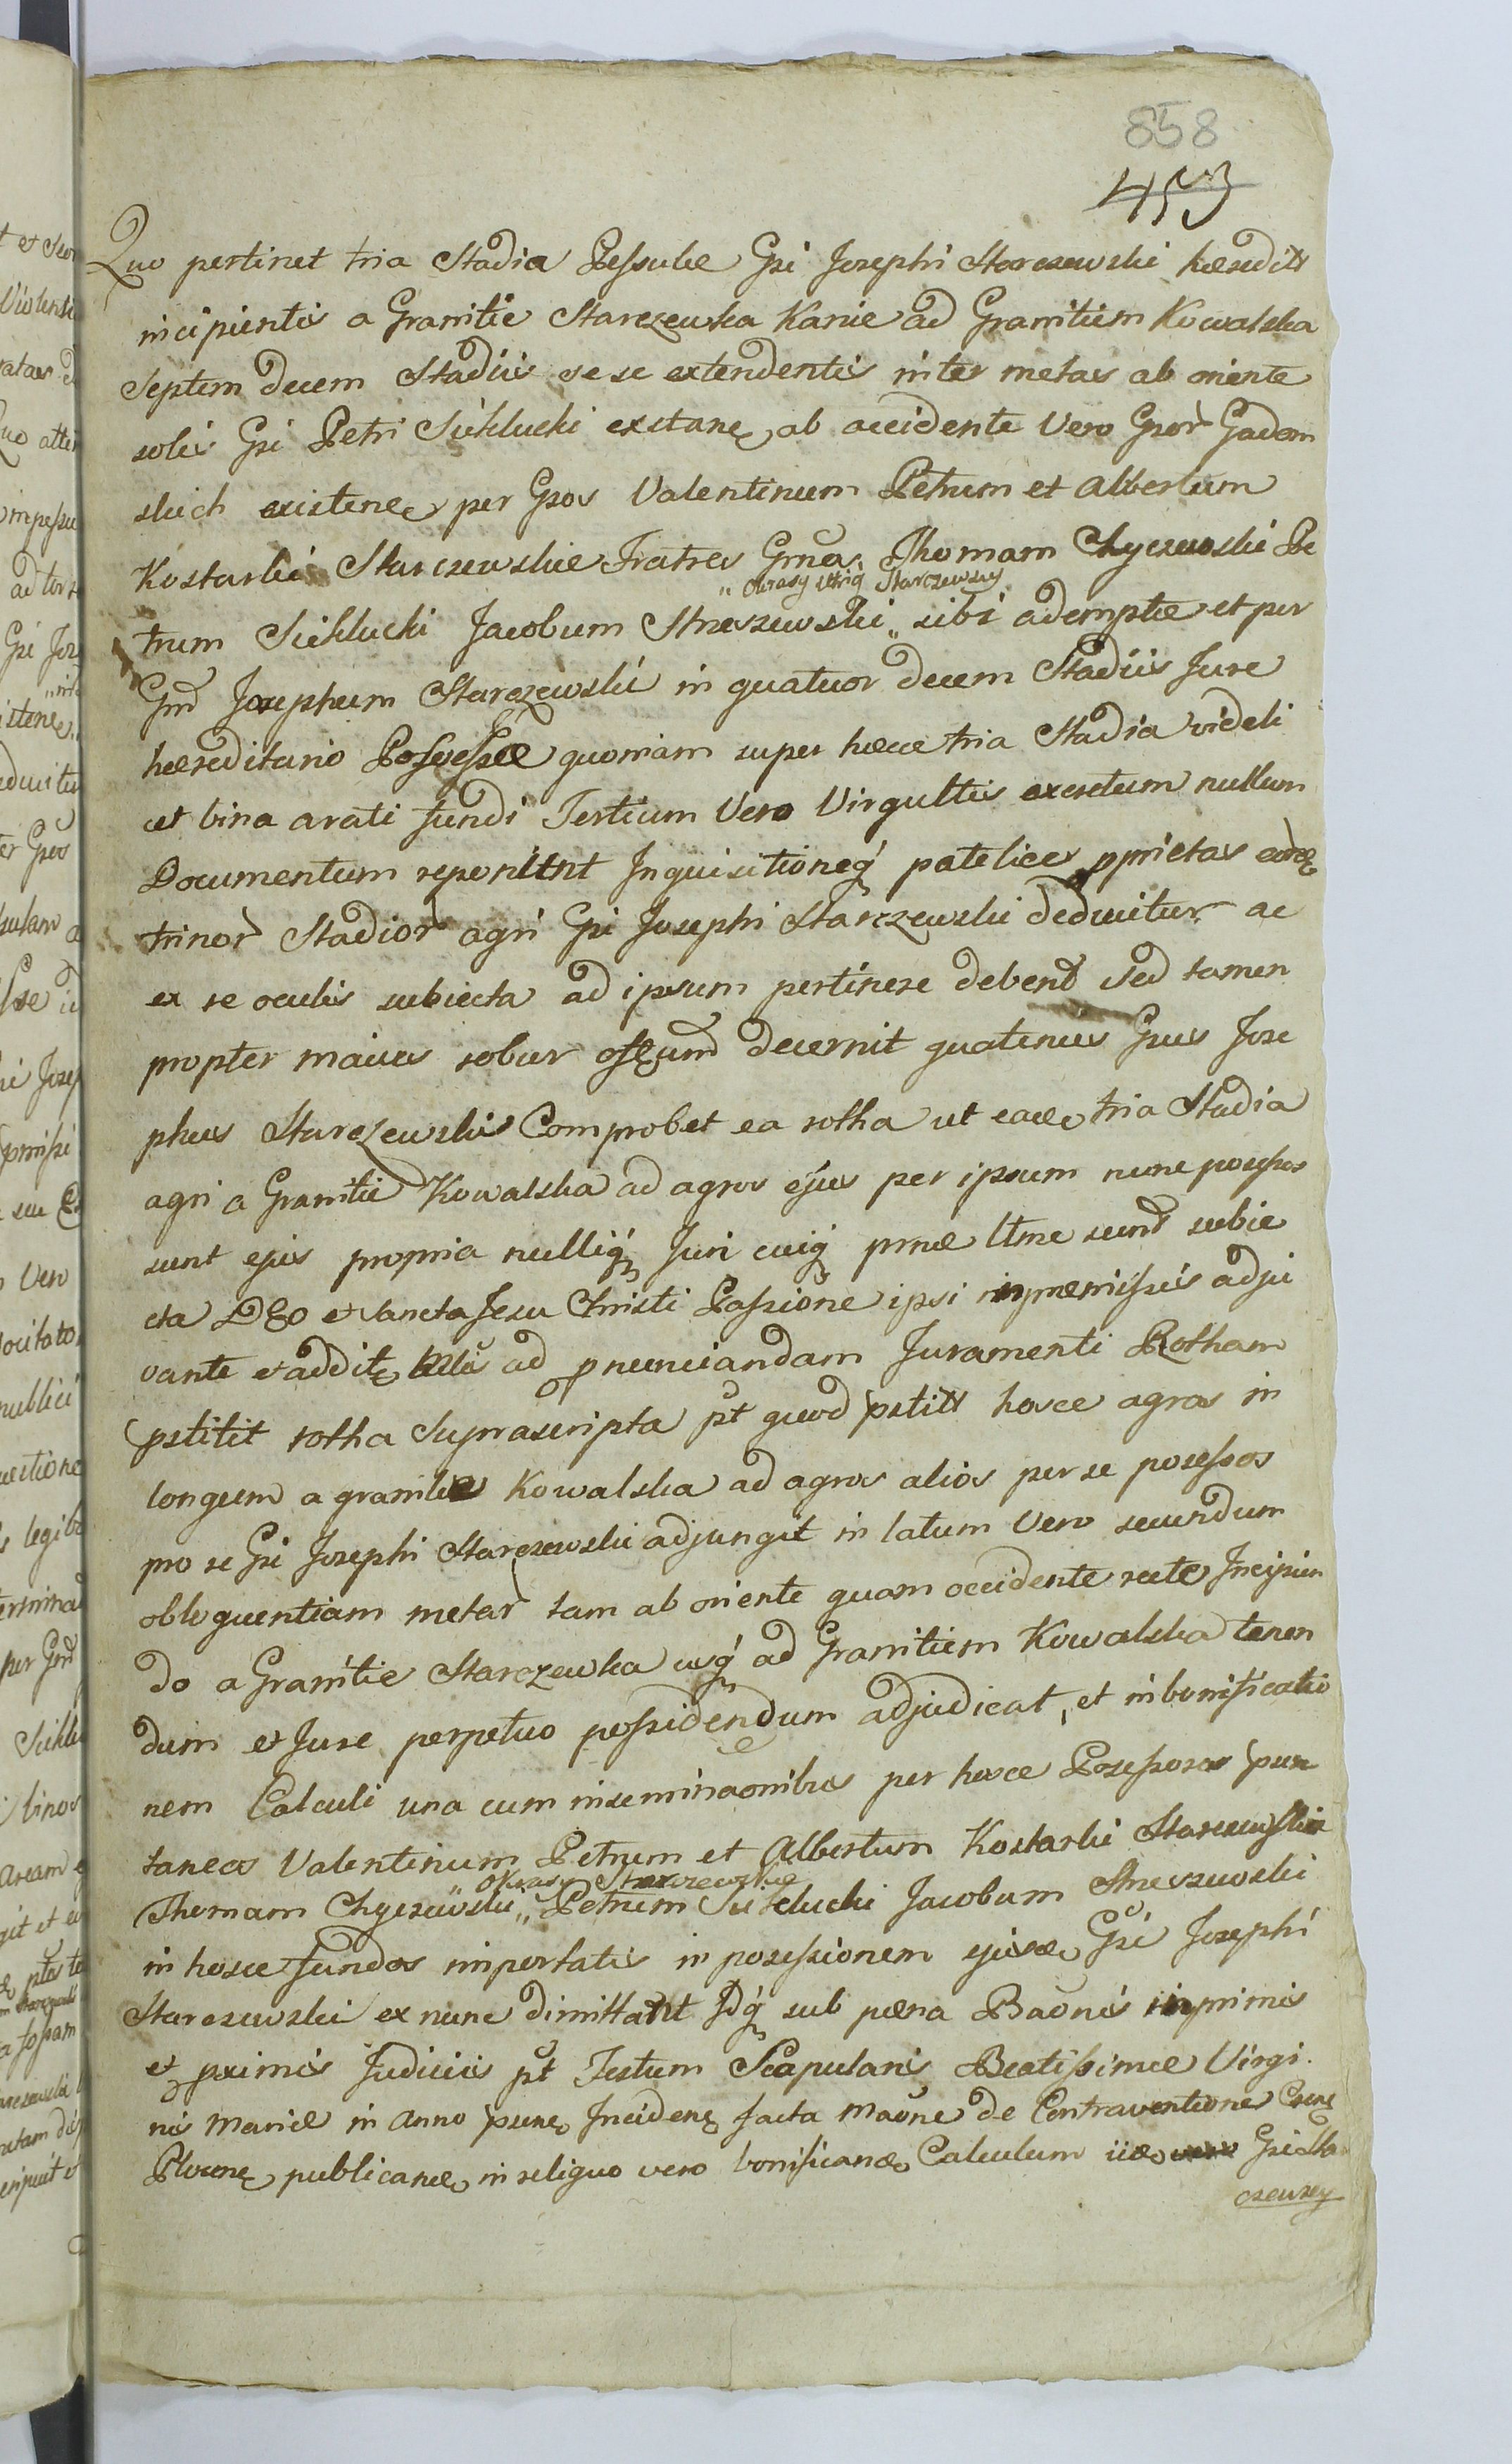 858
453
Quo pertinet tria Stadia Pessulæ Gsi Josephi Starczewski hæreditt
incipientis a Granitie Starczewska Kanie ad Granitiem Kowalska
Septem decem Stadiis sese extendentis inter metas ab oriente
solis Gsi Petri Siklucki exstanę ab accidente Vero Gsor Gadom
skich existenę per Gsos Valentinum Petrum et Albertum
Kostarki Starczewskie Fratres Grnos Thomam Chyczewski Pe
"Okrasy Starczewsky
trum Siklucki Jacobum Strzeszewski " sibi ademptæ et per
Gnd Josephum Starczewski in quatuor decem Stadiis Jure
hæreditario Possessæ quoniam super hæce tria Stadia videli
cet bina arati fundi Tertium Vero Virgultis excretum nullum
Documentum reponitnt Inquisitioneq patelice pprietas eordę
trinor Stadior agri Gsi Josephi Starczewski deducitur ac
ex se oculis subiecta ad ipsum pertinere debent sed tamen
propter maius robur decernit quatenus Gsus Jose
phus Starczewski Comprobet ea rotha ut eace tria Stadia
agri a Granitie Kowalska ad agros ejus per ipsum nunc posessos
sunt ejus propria nulliq Juri cuiq prnæ ltme sunt subie
cta DEo et Sancta Jesu Christi Passione ipsi in præmissis adju
vante et additę ad pnunciandam Juramenti Rotham
pstitit rotha Suprascripta pt quod pstitt hosce agros in
longum a granitie Kowalska ad agros alios per se posessos
pro se Gsi Josephi Starczewski adjungit in latum Vero secundum
obloquentiam metar tam ab oriente quam occidente recte Incipien
do a Granitie Starczewska usq ad Granitiem Kowalska tenen
dum et Jure perpetuo possidendum adjudicat, et in bonificatio
nem Calculi una cum inseminaonibus per hosce Posessores pun
taneos Valentinum Petrum et Albertum Kostarki Starczewskie
Okrasy Starczewskie
Thomam Chyczewski " Petrum Siklucki Jacobum Strzeszewski
in hosce fundos importatis in posessionem ejusde Gsi Josephi
Starczewski ex nunc dimittatnt Idq sub pæna Baonis in primis
et pximis Judiciis pt Festum Scapularis Beatissimæ Virgi
nis Mariæ in Anno punę Incidenę facta Maone de Contraventione Csenę
Plocenę publicandę in reliquo vero bonificandę Calculum iide Gsi Sta
czewscy